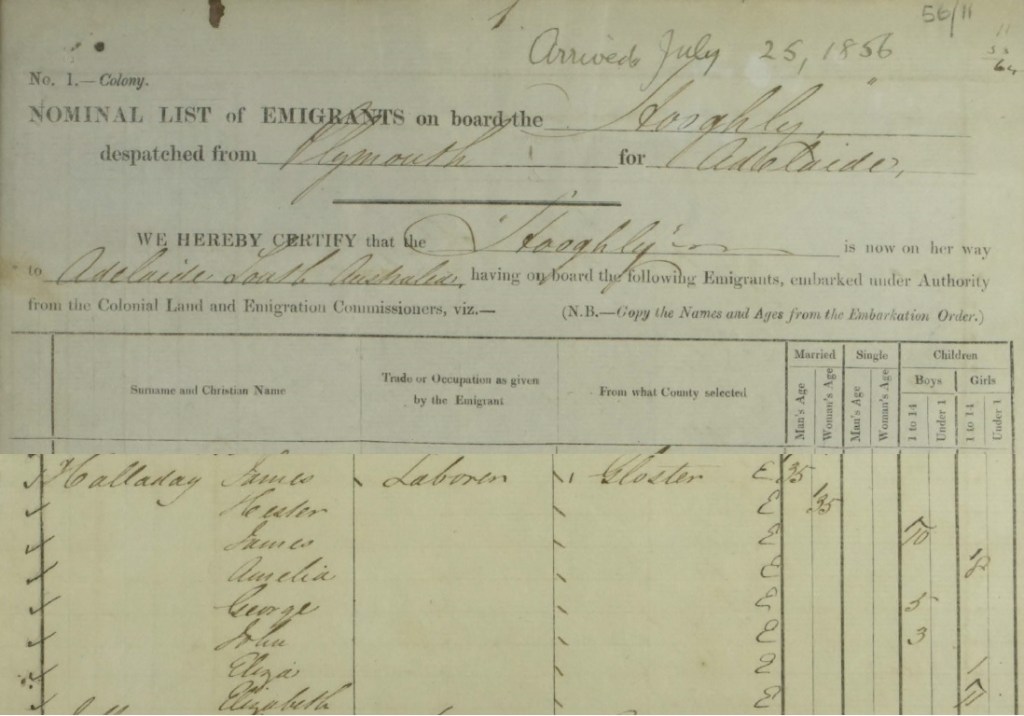 56/11
Arrived July 25, 1856
No. 1.—Colony.
NOMINAL LIST of EMIGRANTS on board the Hooghly,
despatched from Plymouth for Adelaide,
WE HEREBY CERTIFY that the "Hooghly" is now on her way
to Adelaide South Australia, having on board the following Emigrants, embarked under Authority
from the Colonial Land and Emigration Commissioners, viz.— (N.B.—Copy the Names and Ages from the Embarkation Order.)
Surname and Christian Name Trade or Occupation as given by the Emigrant From what County selected Married Single Children
Boys Girls
Man's Age Woman's Age Man's Age Woman's Age 1 to 14 Under 1 1 to 14 Under 1
Halladay James Laborer Gloster E 35
Hester E 35
James E 10
Amelia E 8
George E 5
John E 3
Eliza E 1
Elizabeth E 11